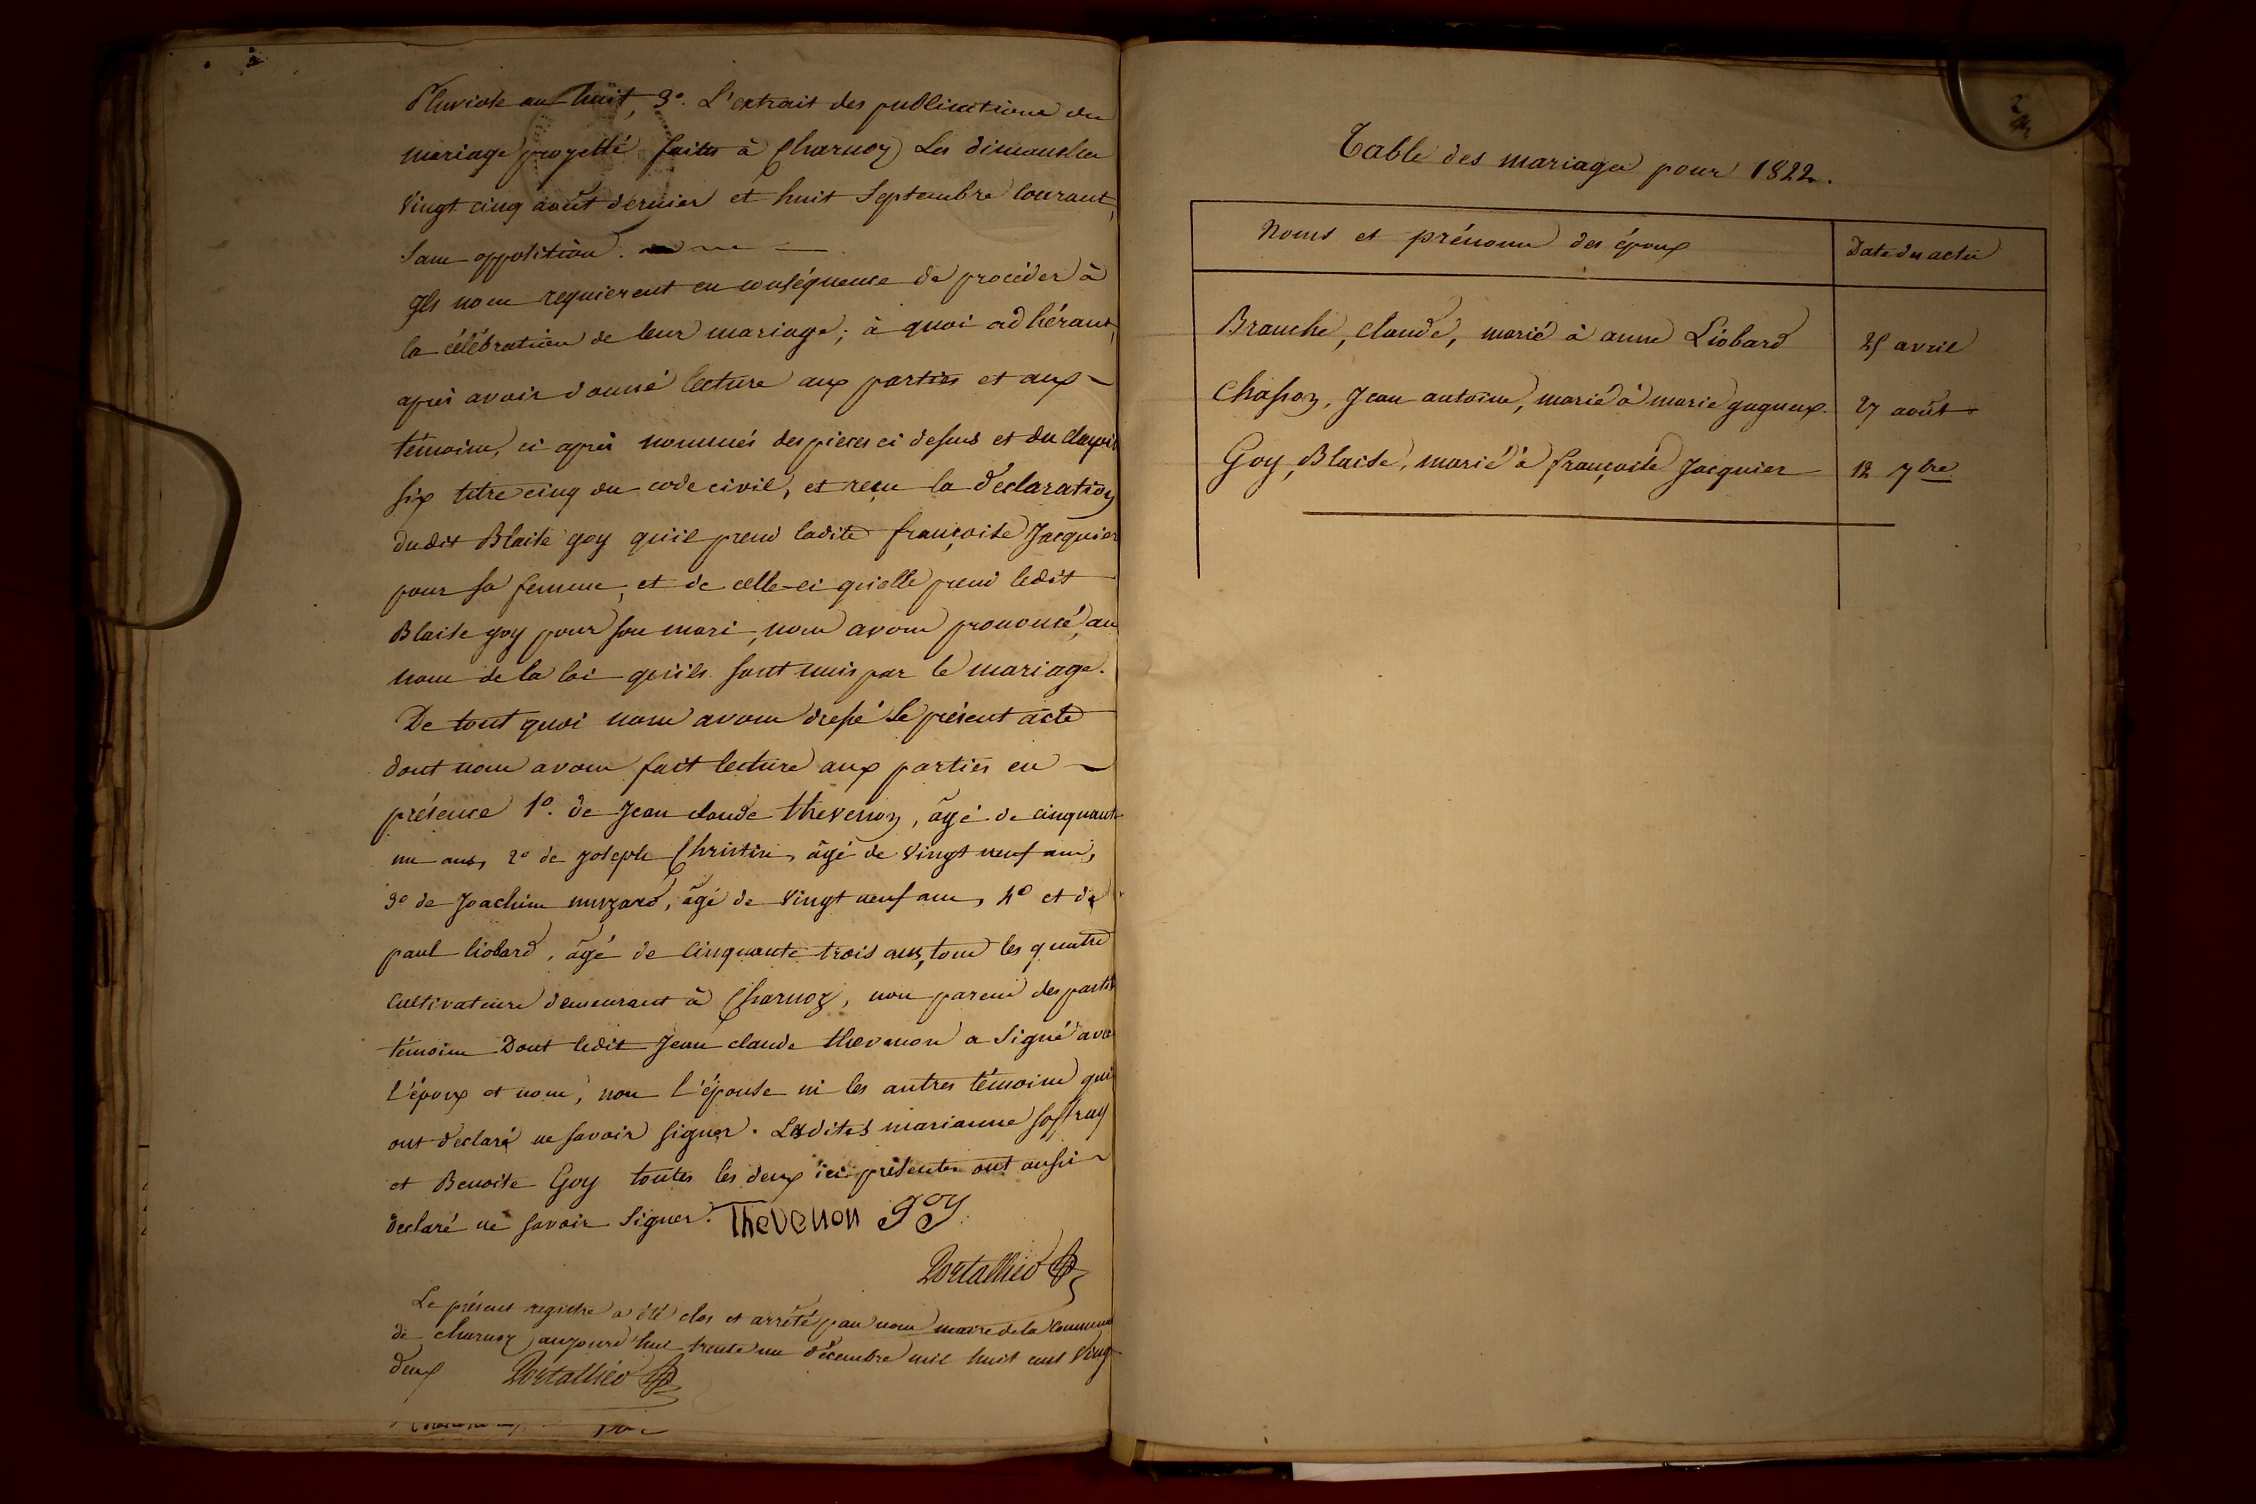 Pluviose an huit, 3º. L'extrait des publications du
mariage projetté faites à Charnoz Les dimanches
vingt cinq août dernier et huit Septembre Courant,
Sans opposition.
Ils nous requierent en conséquence de procéder à
la célébration de leur mariage; à quoi adhérant,
après avoir donné lecture aux parties et aux
témoins, ci après nommés des pieces ci dessus et du chapitre
six titre cinq du code civil, et reçu la déclaration
dudit Blaise goy qu'il prend ladite françoise Jacquier
pour sa femme, et de celle-ci qu'elle prend ledit
Blaise goy pour son mari, nous avons prononcé, au
nom de la loi qu'ils sont unis par le mariage.
De tout quoi nous avons dressé le présent acte
dont nous avons fait lecture aux parties en
présence 1º. de Jean claude thevenon, âgé de cinquante
un ans, 2º de joseph Christin, âgé de vingt neuf ans,
3º de Joachim muzard, âgé de vingt neuf ans, 4º et de
paul liobard, âgé de cinquante trois ans, tous les quatre
Cultivateurs demeurant à Charnoz, non parens des parties
témoins Dont ledit Jean claude thevenon a Signé avec
l'époux et nous, non l'épouse ni les autres témoins qui
ont déclaré ne savoir signer. Lesdites marianne
et Benoite Goy toutes les deux ici présentes ont aussi
declaré ne savoir Signer. Thevenon goy
Portallier
Le présent registre a été clos et arrêté par nous maire de la Commune
de charnoz, aujourd'hui trente un décembre mil huit cent vingt
deux Portallier
Table des mariages pour 1822.
Noms et prénoms des époux
Date des actes
Branche, Claude, marié à anne Liobard 25 avril
Chasson, Jean antoine, marié à marie gugneux. 27 août
Goy, Blaise, marié à françoise Jacquier 12 7bre